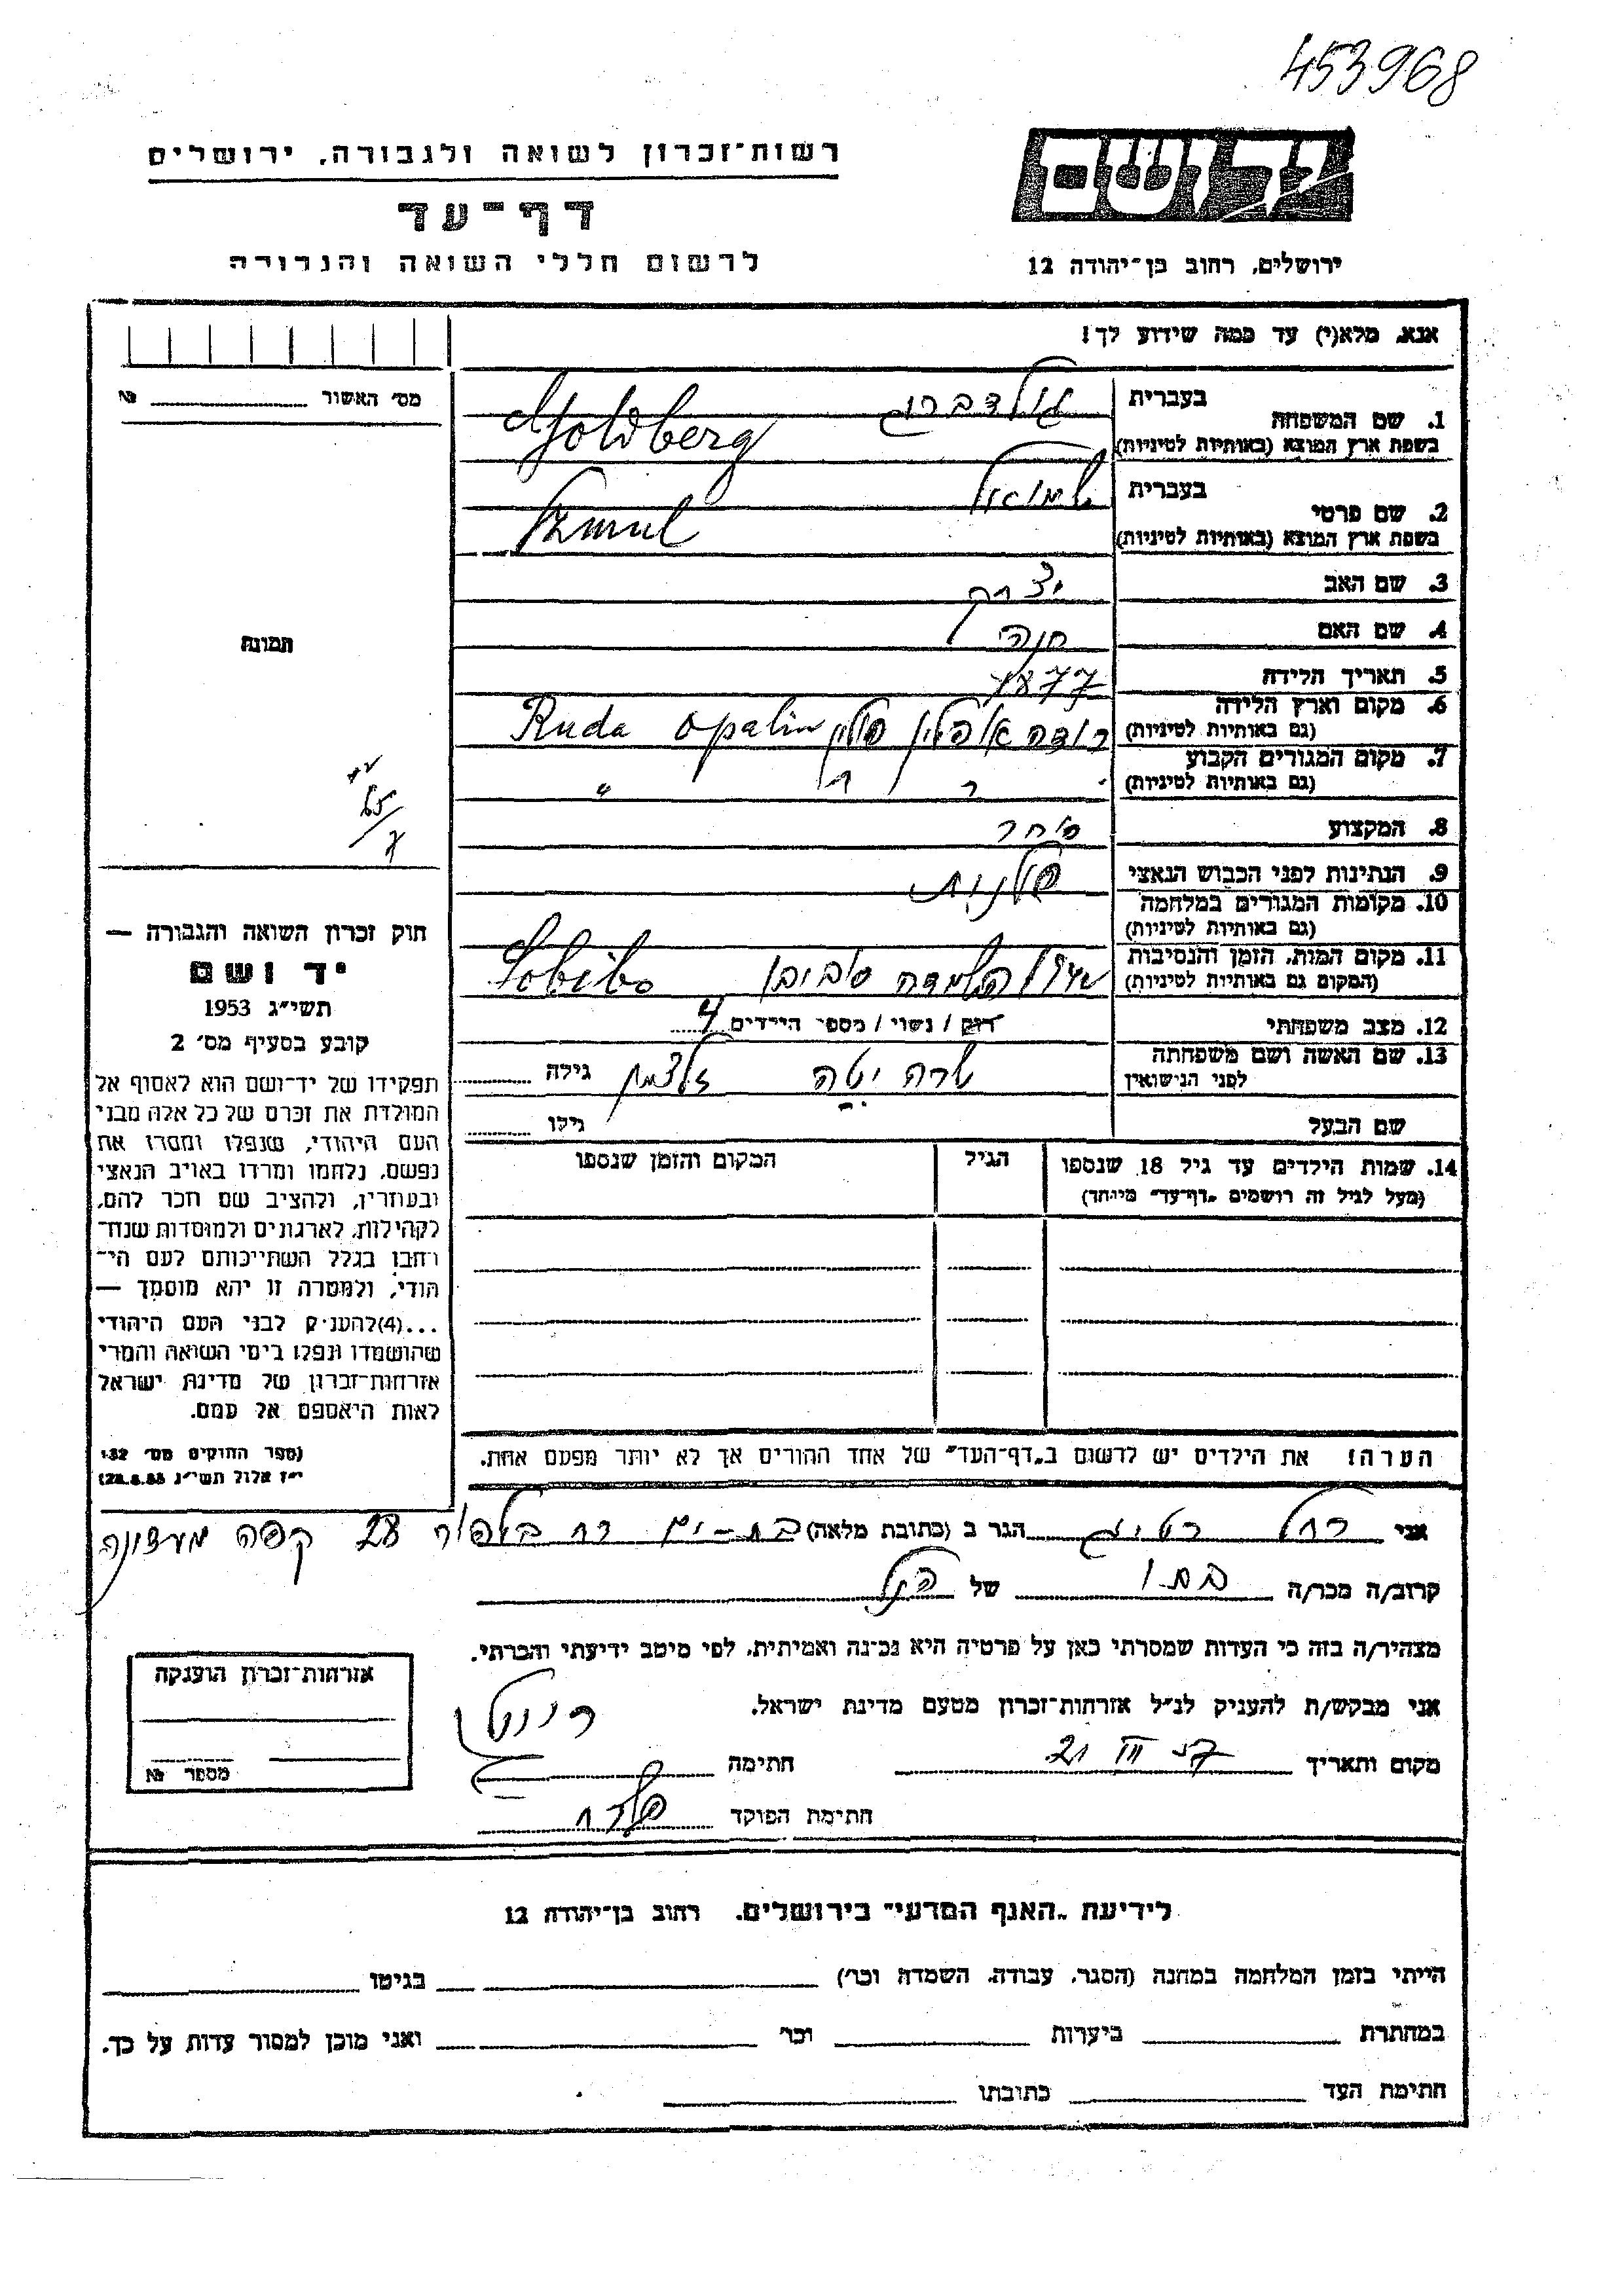 453968
יד ושם
רשות־זכרון לשואה ולגבורה, ירושלים
דף־עד
ירושלים, רחוב בן־יהודה 12
לרשום חללי השואה והגבורה
אנא, מלא(י) עד כמה שידוע לך!
מס׳ האשור №
1. שם המשפחה בעברית גולדברג
בשפת ארץ המוצא (באותיות לטיניות) Goldberg
2. שם פרטי בעברית שמואל
בשפת ארץ המוצא (באותיות לטיניות) Szmul
3. שם האב יצחק
4. שם האם חנה
5. תאריך הלידה 1877
6. מקום וארץ הלידה (גם באותיות לטיניות) רודה אופלין פולין Ruda opalin
7. מקום המגורים הקבוע (גם באותיות לטיניות) "
8. המקצוע סוחר
9. הנתינות לפני הכבוש הנאצי פולנית
10. מקומות המגורים במלחמה (גם באותיות לטיניות)
11. מקום המות, הזמן והנסיבות (המקום גם באותיות לטיניות) השמדה סוביבו Sobibo
12. מצב משפחתי רווק / נשוי / מספר הילדים 4
13. שם האשה ושם משפחתה לפני הנישואין שרה יטה זלצמן גילה
שם הבעל גילו
14. שמות הילדים עד גיל 18 שנספו (מעל לגיל זה רושמים „דף־עד" מיוחד) הגיל המקום והזמן שנספו
הערה! את הילדים יש לרשום ב„דף־העד" של אחד ההורים אך לא יותר מפעם אחת.
תמונה
חוק זכרון השואה והגבורה —
יד ושם
תשי״ג 1953
קובע בסעיף מס׳ 2
תפקידו של יד־ושם הוא לאסוף אל
המולדת את זכרם של כל אלה מבני
העם היהודי, שנפלו ומסרו את
נפשם, נלחמו ומרדו באויב הנאצי
ובעוזריו, ולהציב שם וזכר להם,
לקהילות, לארגונים ולמוסדות שנח־
רבו בגלל השתייכותם לעם הי־
הודי, ולמטרה זו יהא מוסמך —
...(4) להעניק לבני העם היהודי
שהושמדו ונפלו בימי השואה והמרי
אזרחות־זכרון של מדינת ישראל
לאות היאספם אל עמם.
(ספר החוקים מס׳ 132
י״ז אלול תשי״ג 28.8.53)
אני רחל הגר ב (כתובת מלאה) בת-ים רח בלפור 28 קפה
קרוב/ה מכר/ה בתו של הנ״ל
מצהיר/ה בזה כי העדות שמסרתי כאן על פרטיה היא נכונה ואמיתית, לפי מיטב ידיעתי והכרתי.
אני מבקש/ת להעניק לנ״ל אזרחות־זכרון מטעם מדינת ישראל.
מקום ותאריך 21 III 57 חתימה
חתימת הפוקד
אזרחות־זכרון הוענקה
מספר №
לידיעת „האגף המדעי" בירושלים, רחוב בן־יהודה 12
הייתי בזמן המלחמה במחנה (הסגר, עבודה, השמדה וכו׳) בגיטו
במחתרת ביערות וכו׳ ואני מוכן למסור עדות על כך.
חתימת העד כתובתו